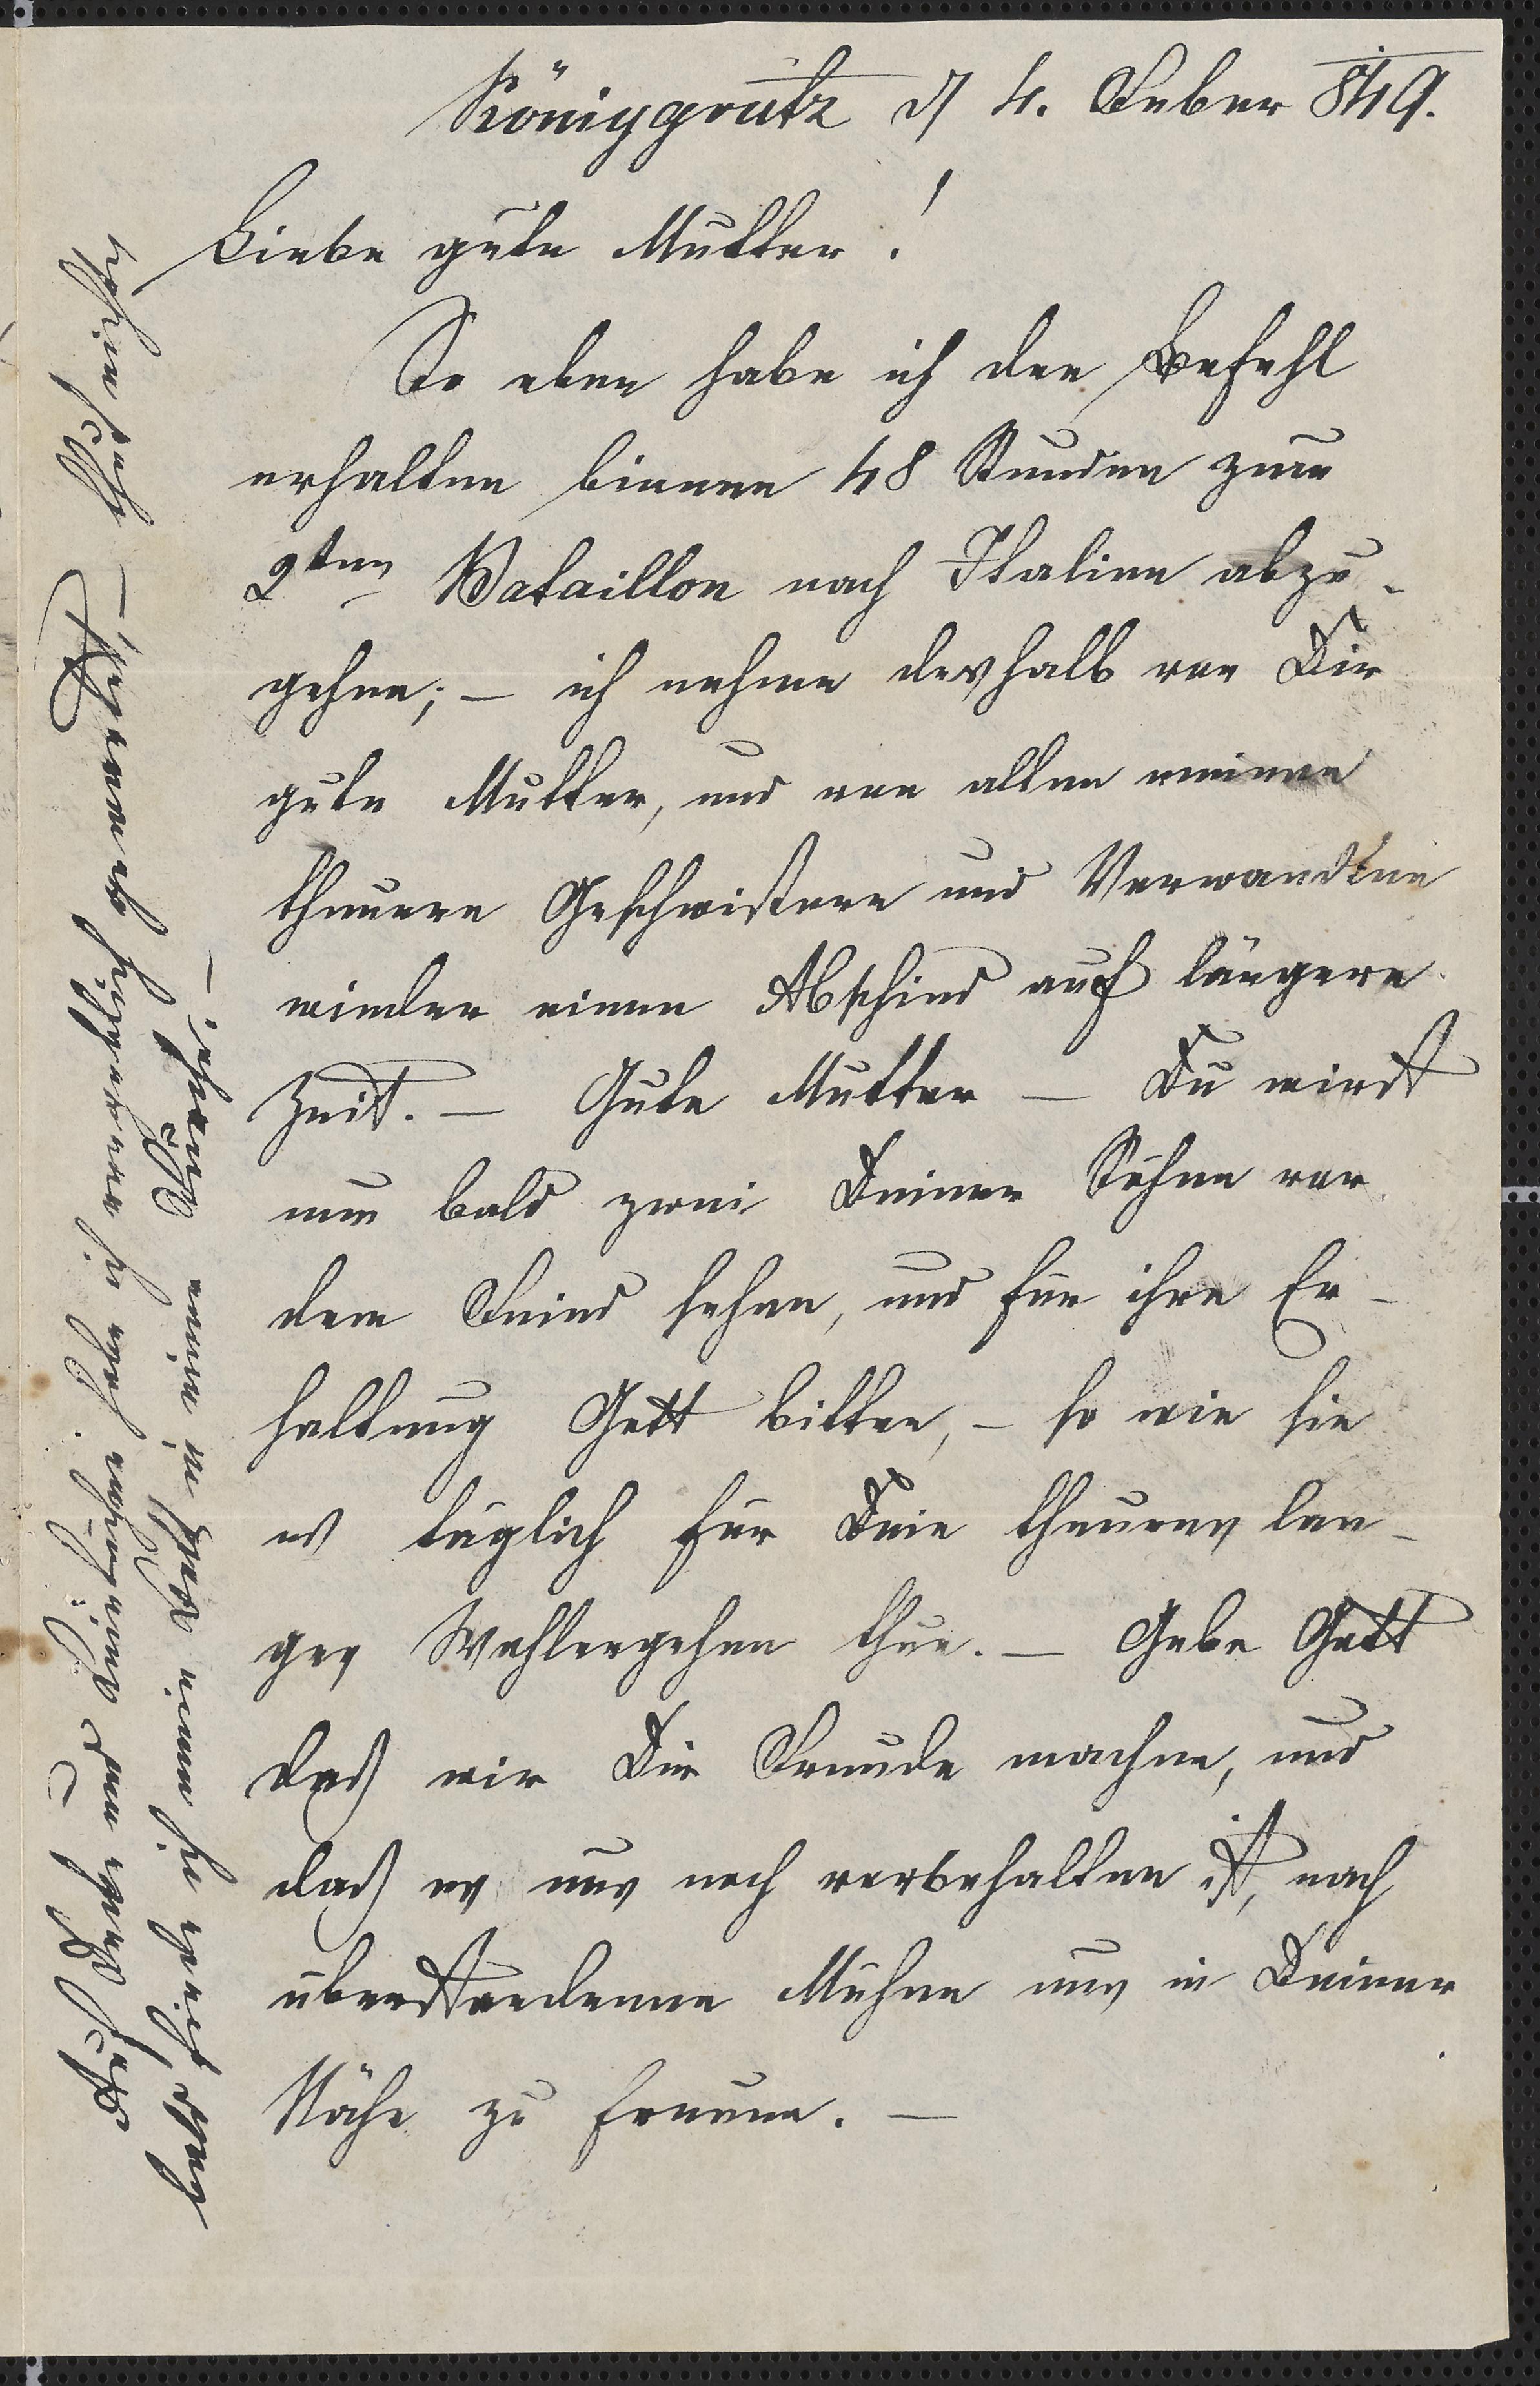 Königgrätz d 4. Feber 849.
Liebe gute Mutter!
So eben habe ich den Befehl
erhalten binnen 48 Stunden zum
2ten Bataillon nach Italien abzu-
gehen; – ich nehme deshalb von Dir
gute Mutter, und von allen meinen
theuern Geschwistern und Verwandten
wieder einen Abschied auf längere
Zeit. – Gute Mutter – Du wirst
nun bald zwei Deiner Söhne vor
dem Feind sehen, und für ihre Er-
haltung Gott bitten, – so wie sie
es täglich für Dein theures lan-
ges Wohlergehen thun. – Gebe Gott
daß wir Dir Freude machen, und
daß es uns noch vorbehalten ist, nach
überstandenen Mühen uns in Deiner
Nähe zu freuen. –